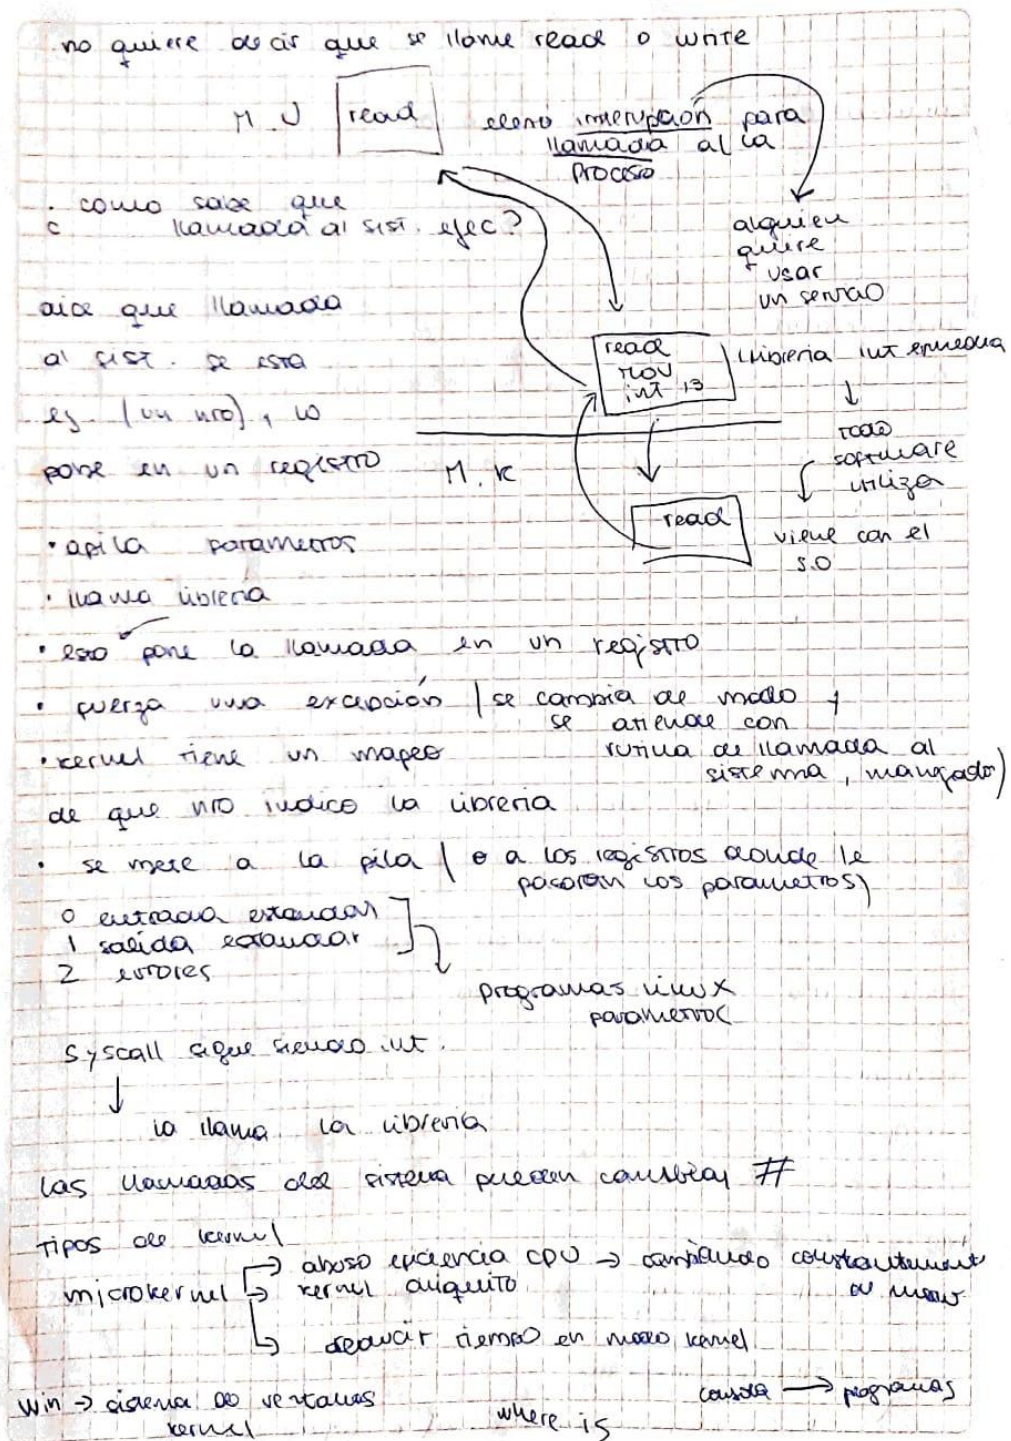 no quiere decir que se llame read o write
M. U
read
interrupción para
llamada al la
proceso
alguien
quiere
usar
un servicio
. como sabe que
c llamada al sist. ejec?
dice que llamada
al sist. se esta
ej. (un nro), lo
pone en un registro
read
MOV
int 13
libreria intermedia
todo
software
utiliza
viene con el
S.O
M. K
read
• apila parametros
• llama libreria
• esto pone la llamada en un registro
• fuerza una excepción (se cambia de modo y
se atiende con
rutina de llamada al
sistema, manejador)
• kernel tiene un mapeo
de que nro indico la libreria
• se mete a la pila (o a los registros donde le
pasaron los parametros)
0 entrada estandar
1 salida estandar
2 errores
programas linux
parametros
Syscall sigue siendo int.
la llama la libreria
las llamadas del sistema pueden cambiar #
Tipos de kernel
microkernel
abuso eficiencia CPU → cambiando constantement
de modo
kernel chiquito
reducir tiempo en modo kernel
Win → sistema de ventanas
kernel
where is
consola → programas